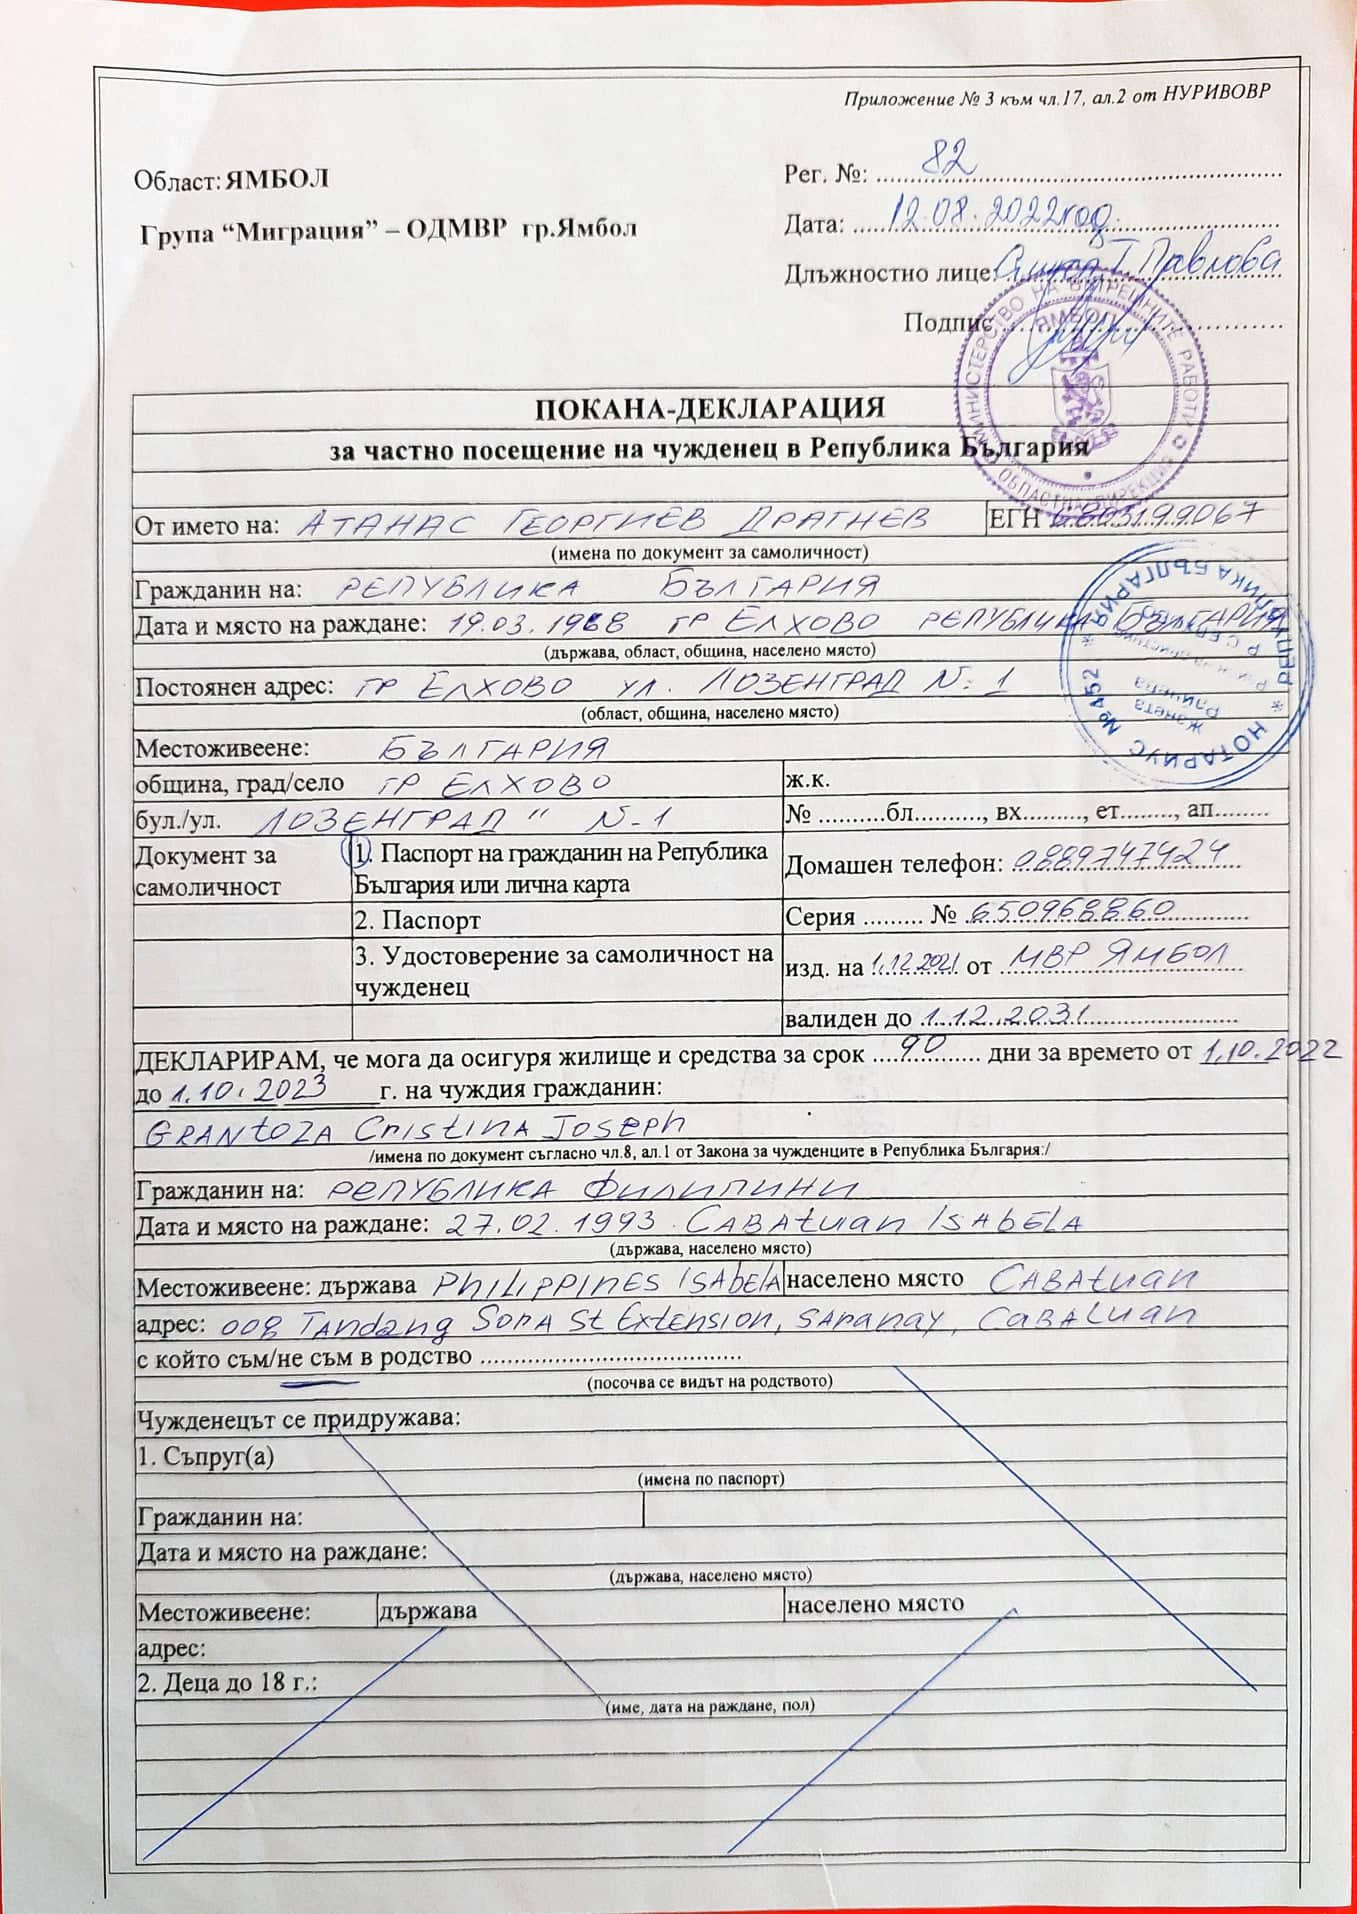 Приложение № 3 към чл.17, ал.2 от НУРИВОВР
Област: ЯМБОЛ
Рег. №: 82
Група “Миграция” – ОДМВР гр.Ямбол
Дата: 12.08.2022год.
Длъжностно лице: Т. Павлова
Подпис
МИНИСТЕРСТВО НА ВЪТРЕШНИТЕ РАБОТИ ОБЛАСТНА ДИРЕКЦИЯ
ЯМБОЛ
ПОКАНА-ДЕКЛАРАЦИЯ
за частно посещение на чужденец в Република България
От името на: АТАНАС ГЕОРГИЕВ ДРАГНЕВ ЕГН 6803199067
(имена по документ за самоличност)
Гражданин на: РЕПУБЛИКА БЪЛГАРИЯ
Дата и място на раждане: 19.03.1968 ГР ЕЛХОВО РЕПУБЛИКА БЪЛГАРИЯ
(държава, област, община, населено място)
Постоянен адрес: ГР ЕЛХОВО УЛ. ЛОЗЕНГРАД N-1
(област, община, населено място)
НОТАРИУС №452 * РЕПУБЛИКА БЪЛГАРИЯ *
Жанета
Местоживеене: БЪЛГАРИЯ
община, град/село ГР ЕЛХОВО ж.к.
бул./ул. ЛОЗЕНГРАД " N-1 № ..........бл.........., вх........., ет........, ап........
Документ за самоличност 1. Паспорт на гражданин на Република България или лична карта Домашен телефон: 0889747424
2. Паспорт Серия ......... № 650968860
3. Удостоверение за самоличност на чужденец изд. на 1.12.2021 от МВР ЯМБОЛ
валиден до 1.12.2031
ДЕКЛАРИРАМ, че мога да осигуря жилище и средства за срок 90 дни за времето от 1.10.2022
до 1.10.2023 г. на чуждия гражданин:
GRANtOZA CristINA Joseph
/имена по документ съгласно чл.8, ал.1 от Закона за чужденците в Република България:/
Гражданин на: РЕПУБЛИКА ФИЛИПИНИ
Дата и място на раждане: 27.02.1993 CABAtuan ISAbELA
(държава, населено място)
Местоживеене: държава PHILIPPINES ISAbELA населено място CABAtuan
адрес: 008 TAndang SorA St Extension, SAranay, CABALuan
с който съм/не съм в родство
(посочва се видът на родството)
Чужденецът се придружава:
1. Съпруг(а)
(имена по паспорт)
Гражданин на:
Дата и място на раждане:
(държава, населено място)
Местоживеене: държава населено място
адрес:
2. Деца до 18 г.:
(име, дата на раждане, пол)